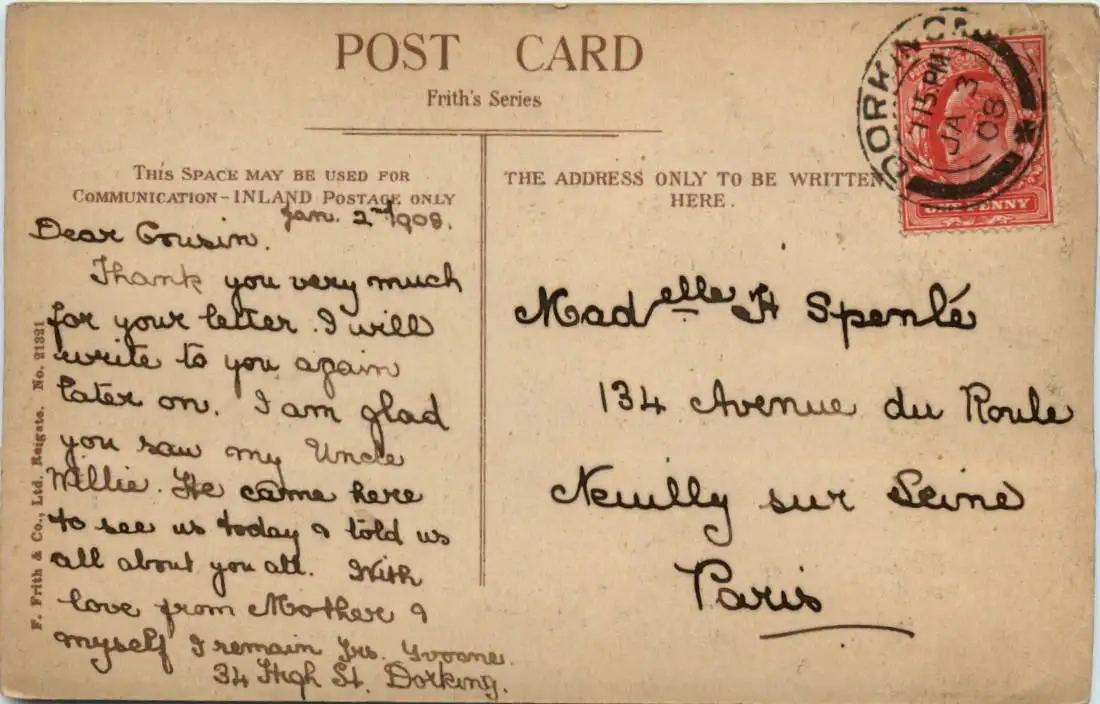 POST CARD
Frith's Series
THIS SPACE MAY BE USED FOR
COMMUNICATION – INLAND POSTAGE ONLY
Jan. 2nd 1908.
Dear Cousin.
Thank you very much
for your letter. I will
write to you again
later on. I am glad
you saw my Uncle
Willie. He came here
to see us today & told us
all about you all. With
love from Mother &
myself I remain Yrs. Yvonne.
34 High St. Dorking.
F. Frith & Co., Ltd. Reigate. No. 21321
THE ADDRESS ONLY TO BE WRITTEN
HERE.
Madelle H Spenlé
134 Avenue du Roule
Neuilly sur Seine
Paris
DORKING
115 PM
JA 3
08
ONE PENNY